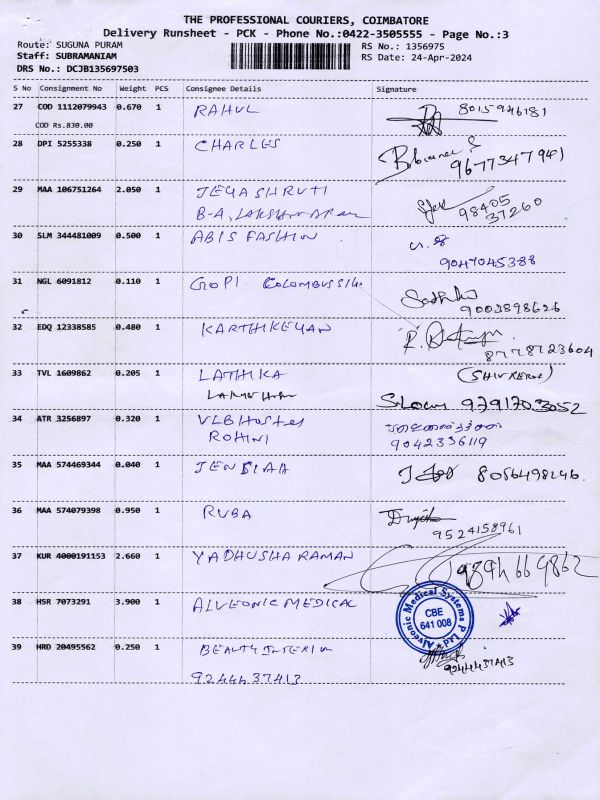 THE PROFESSIONAL COURIERS, COIMBATORE
Delivery Runsheet - PCK - Phone No.:0422-3505555 - Page No.:3
Route: SUGUNA PURAM
RS No.: 1356975
Staff: SUBRAMANIAM
RS Date: 24-Apr-2024
DRS No.: DCJB135697503
S No Consignment No Weight PCS Consignee Details Signature
27 COD 1112079943 0.670 1 RAHUL 8015946181
COD Rs.830.00
28 DPI 5255338 0.250 1 CHARLES
9677347941
29 MAA 106751264 2.050 1 JEYASHRUTI
98405
37260
B-A,
30 SLM 344481009 0.500 1 ABIS FASHION
9047045388
31 NGL 6091812 0.110 1 GOPI
9003898626
32 EDQ 12338585 0.480 1 KARTHIKEYAN
8778723604
33 TVL 1609862 0.205 1 LATHIKA
9791703052
34 ATR 3256897 0.320 1 VLB Hostel
ROHINI
9042336119
35 MAA 574469344 0.040 1 8056498246
36 MAA 574079398 0.950 1 RUBA
9524158961
37 KUR 4000191153 2.660 1 YADHUSHA RAMAN
38 HSR 7073291 3.900 1 ALVEONIC MEDICAL
Alveonic Medical Systems P Ltd
CBE
641 008
39 HRD 20495562 0.250 1 BEAUTY
9244437413
9244437413